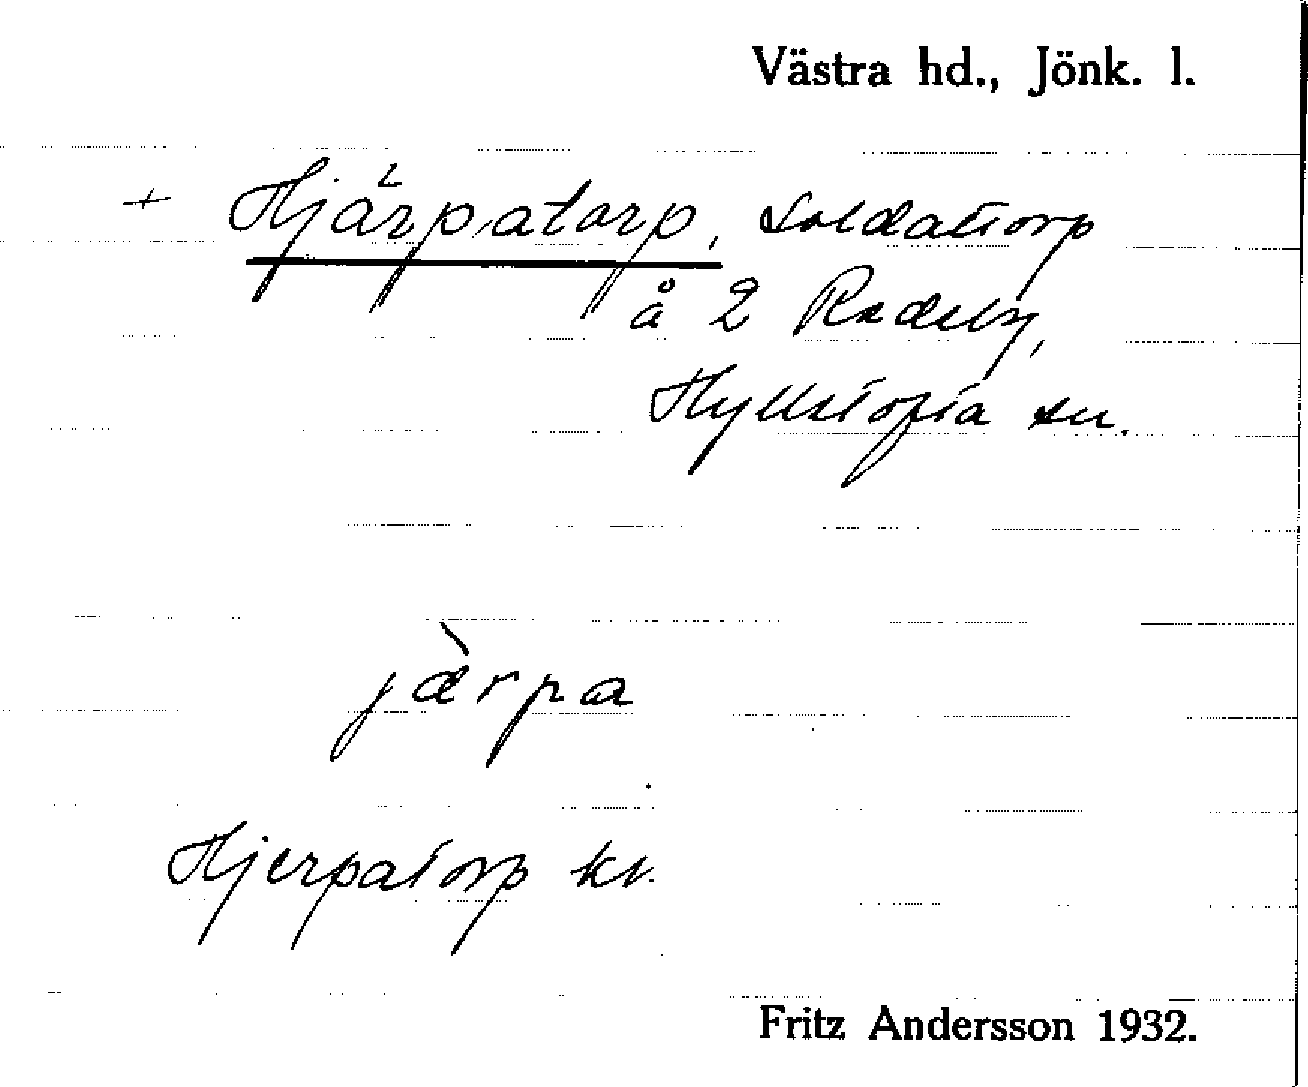 Västra hd., Jönk. l.
+ Hjärpatorp, Soldattorp
å 2 Rödeby,
Hylletofta sn.
jærpa
Hjerpatorp kr.
Fritz Andersson 1932.